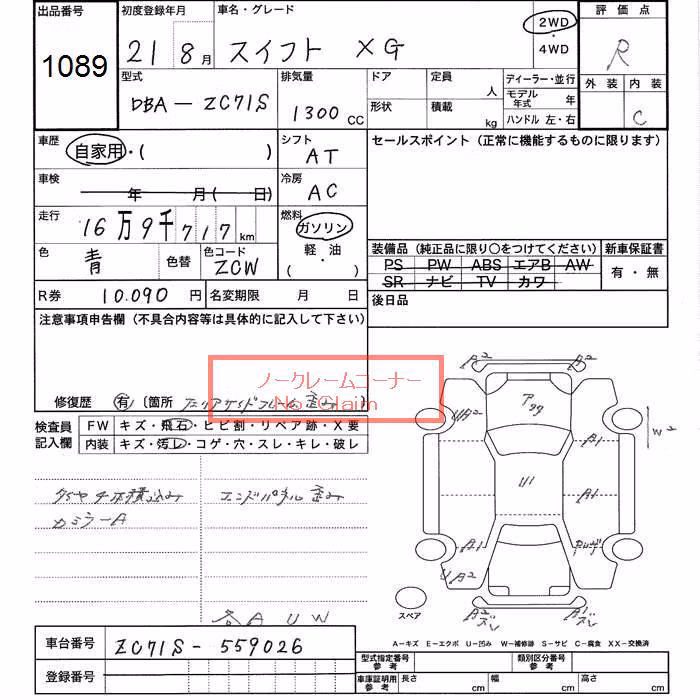 出品番号
1089
初度登録年月
21 8月
車名・グレード
スイフト XG
2WD
・
4WD
評価点
R
外装 内装
C
型式
DBA-ZC71S
排気量
1300 CC
ドア
形状
定員
人
積載
kg
ディーラー・並行
モデル年式 年
ハンドル 左・右
車歴
自家用・( )
シフト
AT
車検
年 月( 日)
冷房
AC
走行
16万9千717km
燃料
ガソリン
軽・油
( )
色
青
色替
色コード
ZCW
R券 10.090 円
名変期限 月 日
セールスポイント(正常に機能するものに限ります)
装備品(純正品に限り○をつけてください)
PS PW ABS エアB AW
SR ナビ TV カワ
新車保証書
有・無
後日品
注意事項申告欄(不具合内容等は具体的に記入して下さい)
ノークレームコーナー
No Claim
修復歴 有 (箇所
検査員
記入欄
FW キズ・飛石・ヒビ割・リペア跡・X要
内装 キズ・汚レ・コゲ・穴・スレ・キレ・破レ
タイヤ4本積込み
エンドパネル歪み
カミラーA
各AUW
A2
A2
UA2
アクク
A1
W2
U1
A1
A1
UA2
スペア
A-キズ E-エクボ U-凹み W-補修跡 S-サビ C-腐食 XX-交換済
車台番号 ZC71S-559026
登録番号
型式指定番号
参考
類別区分番号
参考
車庫証明用
参考
長さ cm
幅 cm
高さ cm